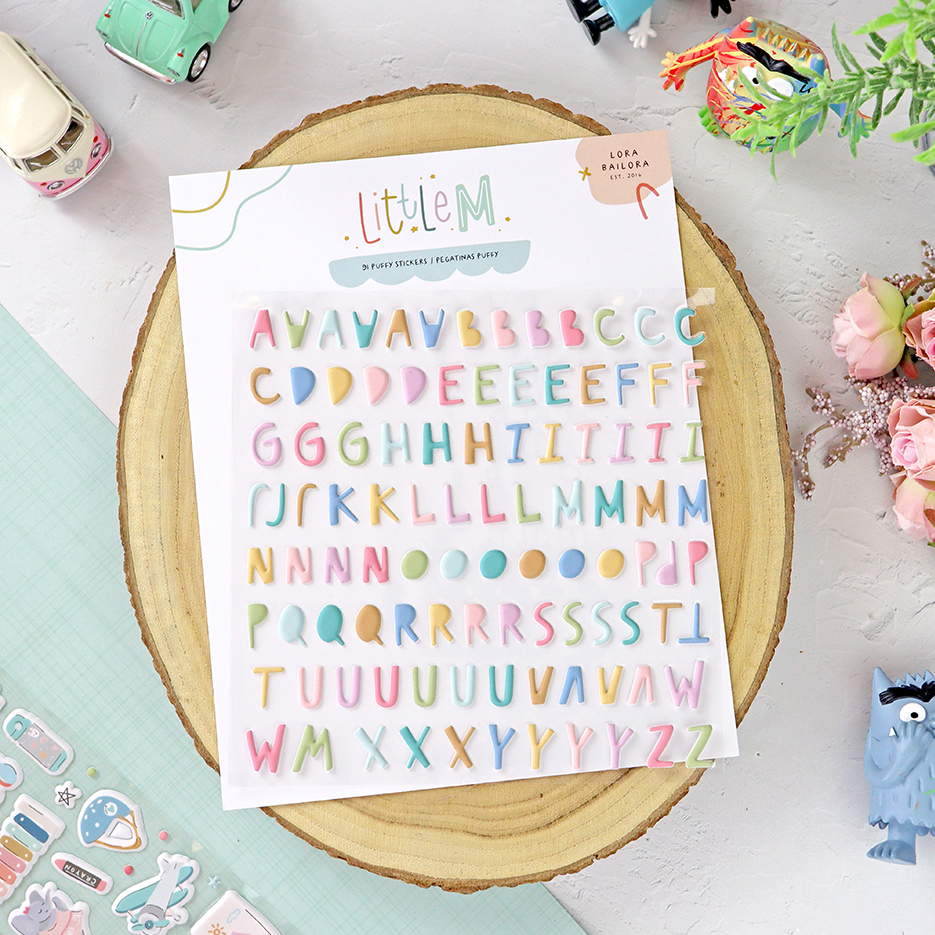 LORA
BAILORA
EST. 2016
LittLe M
91 PUFFY STICKERS | PEGATINAS PUFFY
A A A A A A B B B B C C C
C D D D D E E E E E F F F
G G G H H H I I I I I I
J J J K K L L L L M M M M
N N N N O O O O O O P P P
P Q Q Q R R R R S S S S T T
T U U U U U U V V V V W
W M X X X Y Y Y Y Z Z
CRAYON